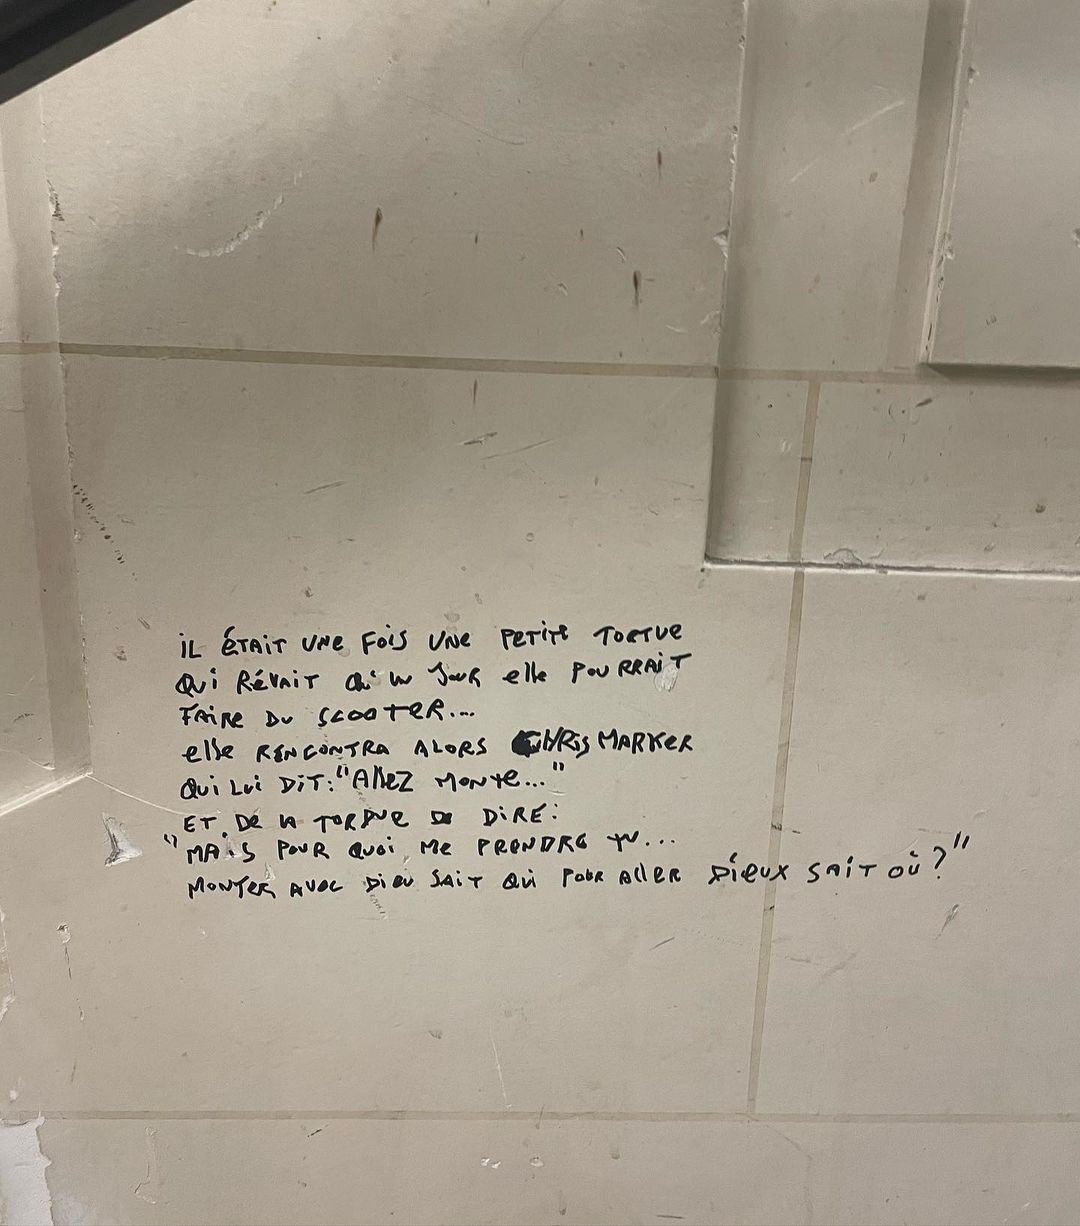 iL ÉTAiT UNE FOiS UNE PETiTE TORTUE
QUi RÊVAiT QU'UN JOUR elle POURRAiT
FAiRE DU SCOOTER...
elle RENCONTRA ALORS CHRiS MARKER
QUi LUi DiT: "AllEZ MONTE..."
ET DE LA TORTUE DE DiRE:
"MAiS POUR QUOi ME PRENDRE TU...
MONTER AVEC DiEU SAiT QUi POUR AllER DiEUX SAiT OÙ?"